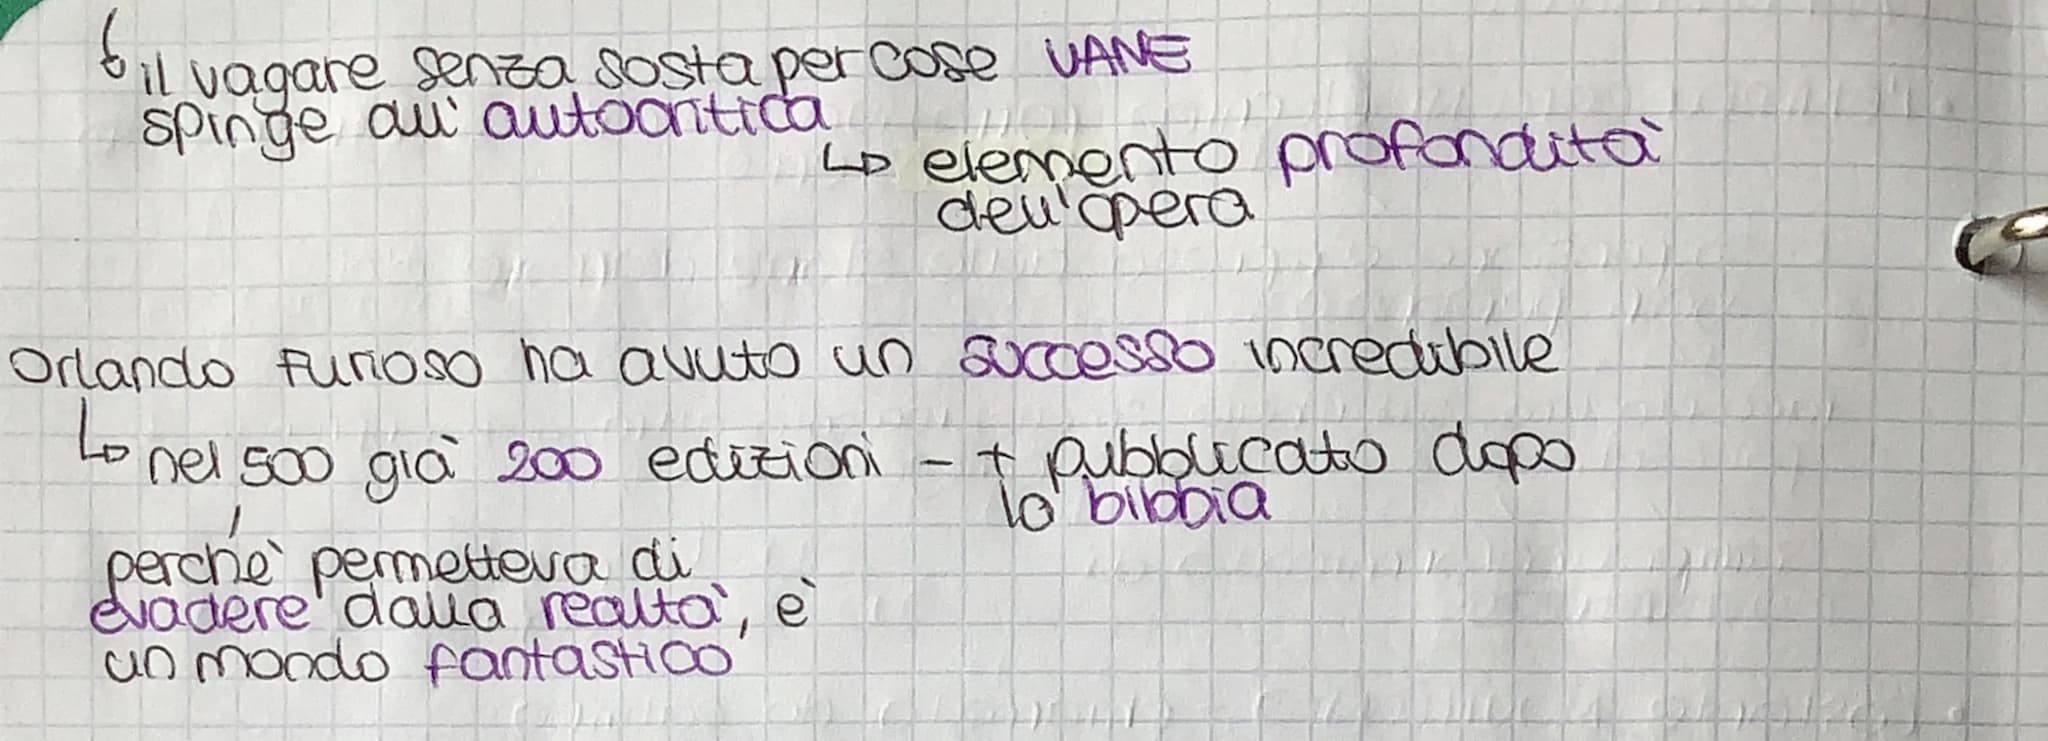 ↳ il vagare senza sosta per cose VANE
spinge all'autocritica
↳ elemento profondità
dell'opera
Orlando furioso ha avuto un successo incredibile
↳ nel 500 già 200 edizioni - + pubblicato dopo
la bibbia
perchè permetteva di
evadere dalla realtà, è
un mondo fantastico